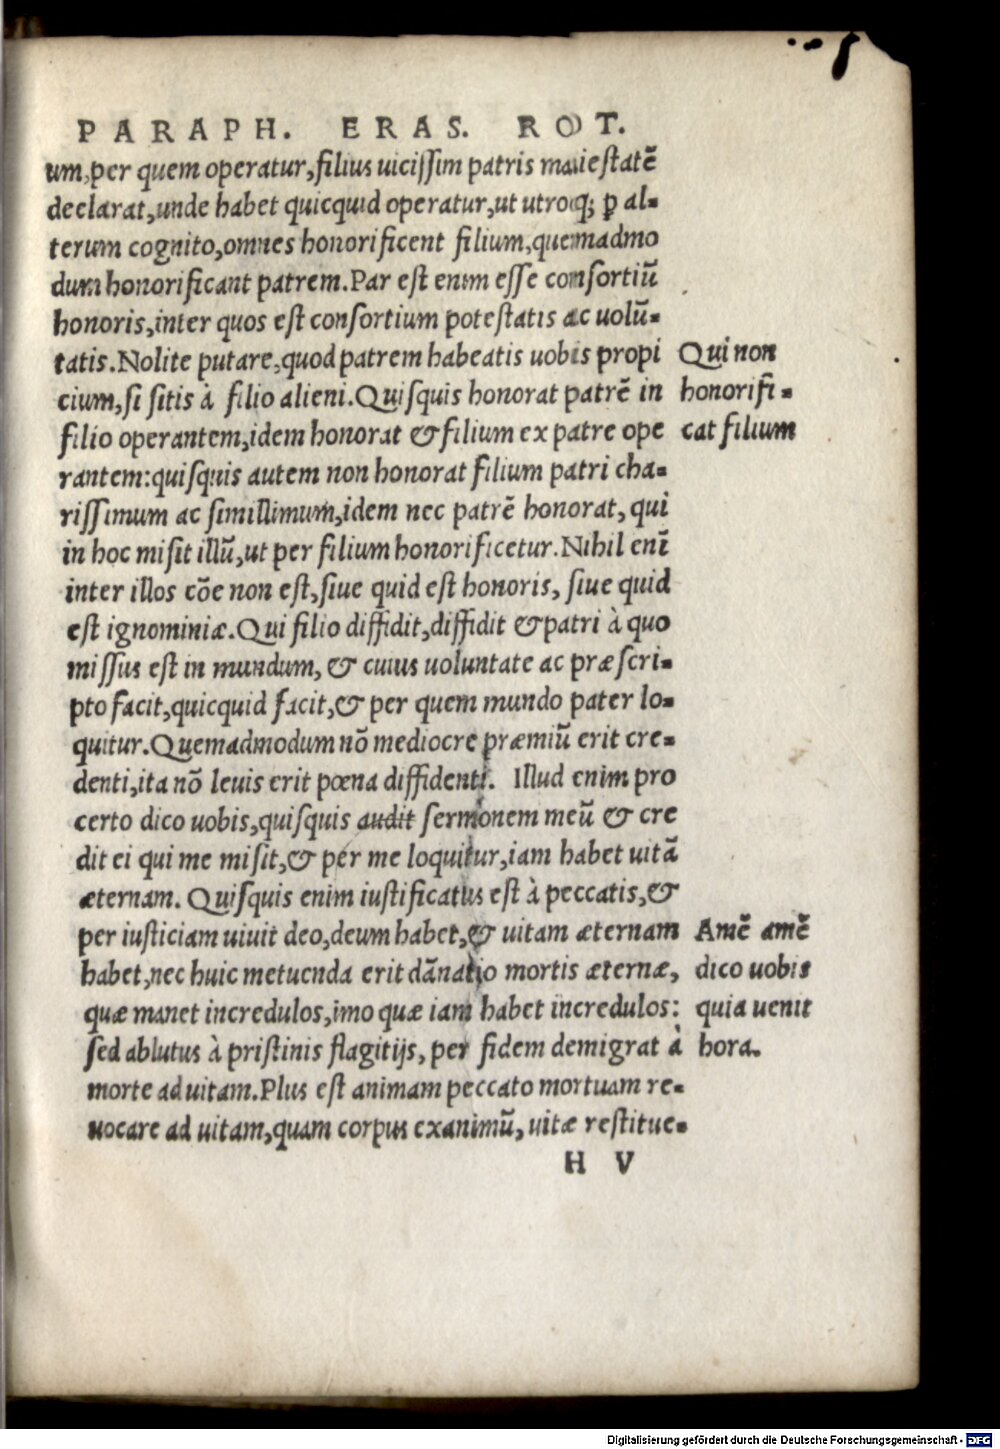 PARAPH. ERAS. ROT.
um, per quem operatur, filius uicissim patris maiestatē
declarat, unde habet quicquid operatur, ut utroq; ꝑ al-
terum cognito, omnes honorificent filium, quemadmo
dum honorificant patrem. Par est enim esse consortiū
honoris, inter quos est consortium potestatis ac uolū-
tatis. Nolite putare, quod patrem habeatis uobis propi
cium, si sitis à filio alieni. Quisquis honorat patrē in
filio operantem, idem honorat & filium ex patre ope
rantem: quisquis autem non honorat filium patri cha-
rissimum ac simillimum, idem nec patrē honorat, qui
in hoc misit illū, ut per filium honorificetur. Nihil enī
inter illos cōe non est, siue quid est honoris, siue quid
est ignominiæ. Qui filio diffidit, diffidit & patri à quo
missus est in mundum, & cuius uoluntate ac præscri-
pto facit, quicquid facit, & per quem mundo pater lo-
quitur. Quemadmodum nō mediocre præmiū erit cre-
denti, ita nō leuis erit pœna diffidenti. Illud enim pro
certo dico uobis, quisquis audit sermonem meū & cre
dit ei qui me misit, & per me loquitur, iam habet uitā
æternam. Quisquis enim iustificatus est à peccatis, &
per iusticiam uiuit deo, deum habet, & uitam æternam
habet, nec huic metuenda erit dānatio mortis æternæ,
quæ manet incredulos, imo quæ iam habet incredulos:
sed ablutus à pristinis flagitijs, per fidem demigrat à
morte ad uitam. Plus est animam peccato mortuam re-
uocare ad uitam, quam corpus exanimū, uitæ restitue-
H V
Qui non
honorifi-
cat filium
Amē amē
dico uobis
quia uenit
hora.
Digitalisierung gefördert durch die Deutsche Forschungsgemeinschaft - DFG